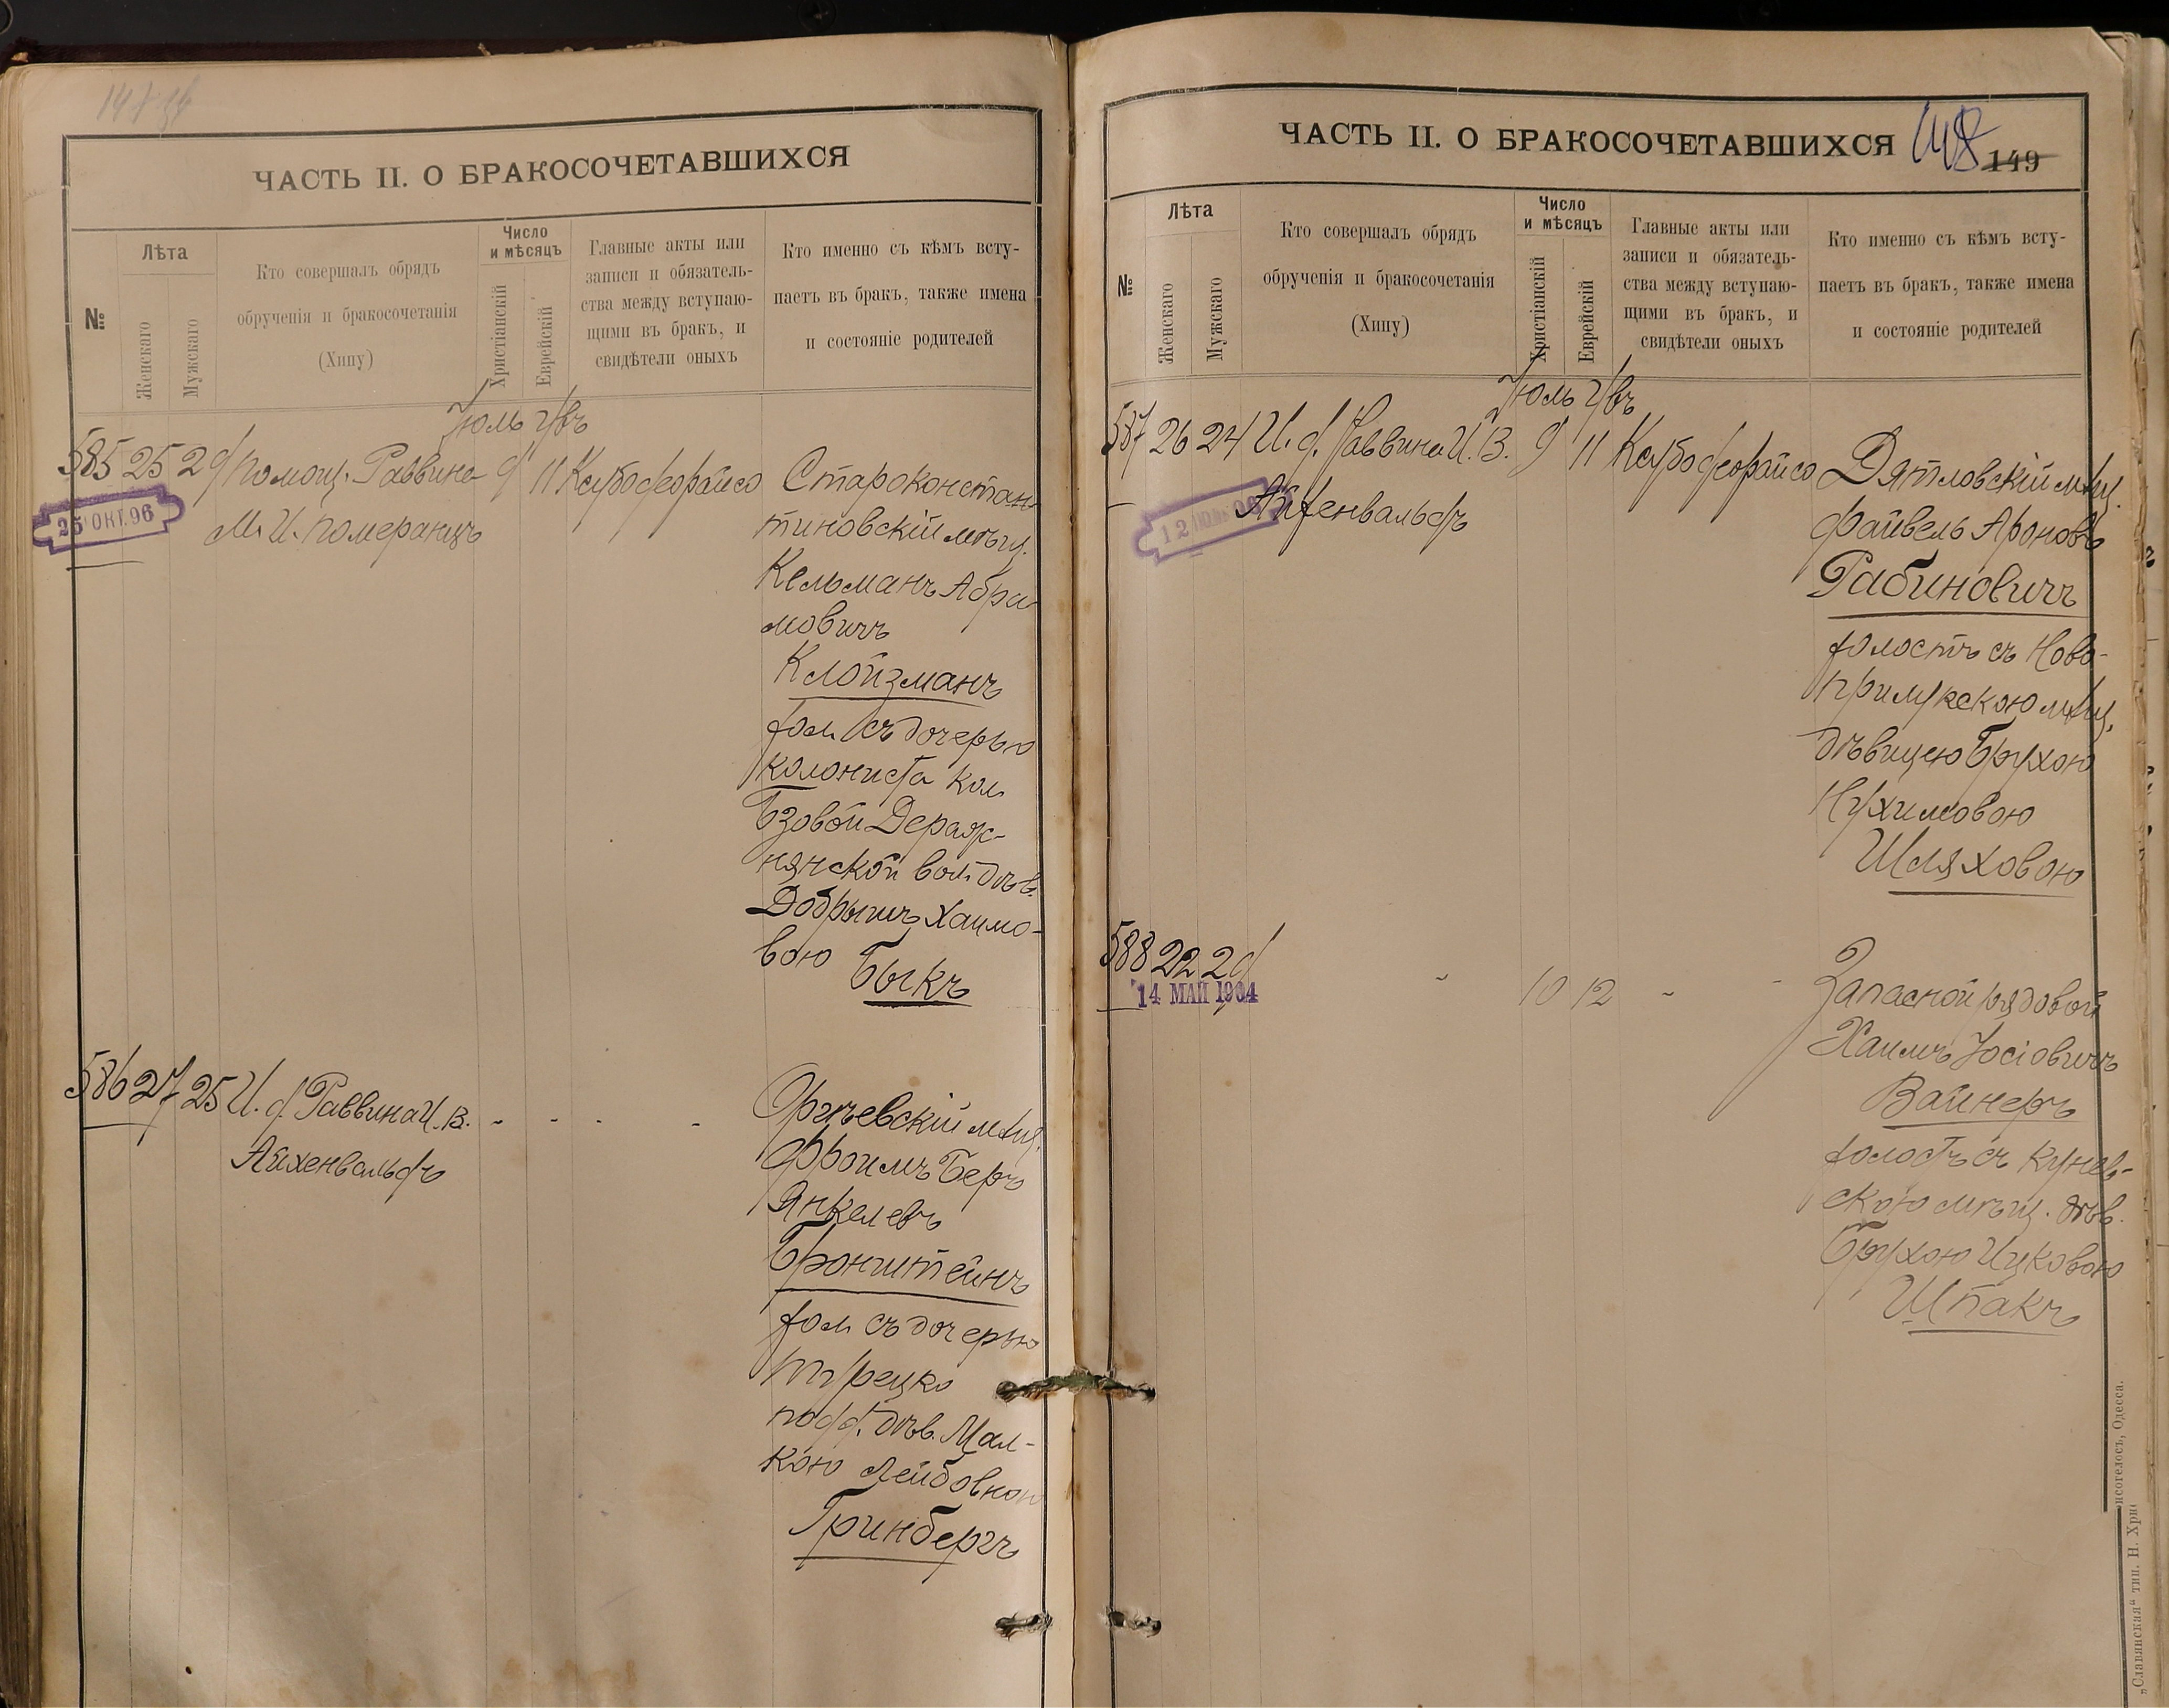 ЧАСТЬ II. О БРАКОСОЧЕТАВШИХСЯ
№
Лѣта
Женскаго
Мужскаго
Кто совершалъ обрядъ
обрученія и бракосочетанія
(Хипу)
Число
и мѣсяцъ
Христіанскій
Еврейскій
Главные акты или
записи и обязатель-
ства между вступаю-
щими въ бракъ, и
свидѣтели оныхъ
Кто именно съ кѣмъ всту-
паетъ въ бракъ, также имена
и состояніе родителей
585 25 29 Помощ. Раввина 9 11
М. И. Померанцъ
25 ОКТ. 96
Староконстан
тиновскій мѣщ.
Кельманъ Абра
мовичъ
Клойзманъ
хол. съ дочерью
колониста кол.
Бзовой Дераж-
нянской вол. дѣв.
Добрышъ Хаимо-
вою
Быкъ
586 27 25 И. д. Раввина И. В.
Айхенвальдъ
Оргѣевскій мѣщ.
Фроимъ Беръ
Янкелевъ
Бронштейнъ
хол. съ дочерью
турецко
подд. дѣв. Мал-
кою Лейбовною
Гринбергъ
ЧАСТЬ II. О БРАКОСОЧЕТАВШИХСЯ
148
149
№
Лѣта
Женскаго
Мужскаго
Кто совершалъ обрядъ
обрученія и бракосочетанія
(Хипу)
Число
и мѣсяцъ
Христіанскій
Еврейскій
Главные акты или
записи и обязатель-
ства между вступаю-
щими въ бракъ, и
свидѣтели оныхъ
Кто именно съ кѣмъ всту-
паетъ въ бракъ, также имена
и состояніе родителей
587 26 24 И. д. Раввина И. В. 9 11
Айхенвальдъ
Дятловскій мѣщ.
Файвель Ароновъ
Рабиновичъ
холостъ съ Ново-
прилукскою мѣщ.
дѣвицею Брухою
Нухимовою
Шляховою
588 22 29 10 12
14 МАЙ 1904
Запасной рядовой
Хаимъ Іосіовичъ
Вайнеръ
холостъ съ Кунев-
скою мѣщ. дѣв.
Брухою Ицковою
Шпакъ
„Славянская“ тип. Н. Хрисогелосъ, Одесса.